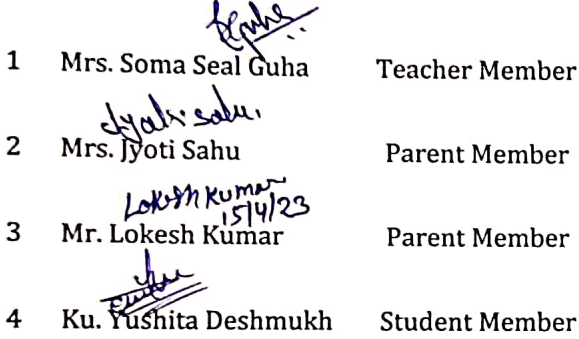 SGuha
1 Mrs. Soma Seal Guha Teacher Member
Jyoti Sahu.
2 Mrs. Jyoti Sahu Parent Member
Lokesh Kumar
15/4/23
3 Mr. Lokesh Kumar Parent Member
4 Ku. Yushita Deshmukh Student Member